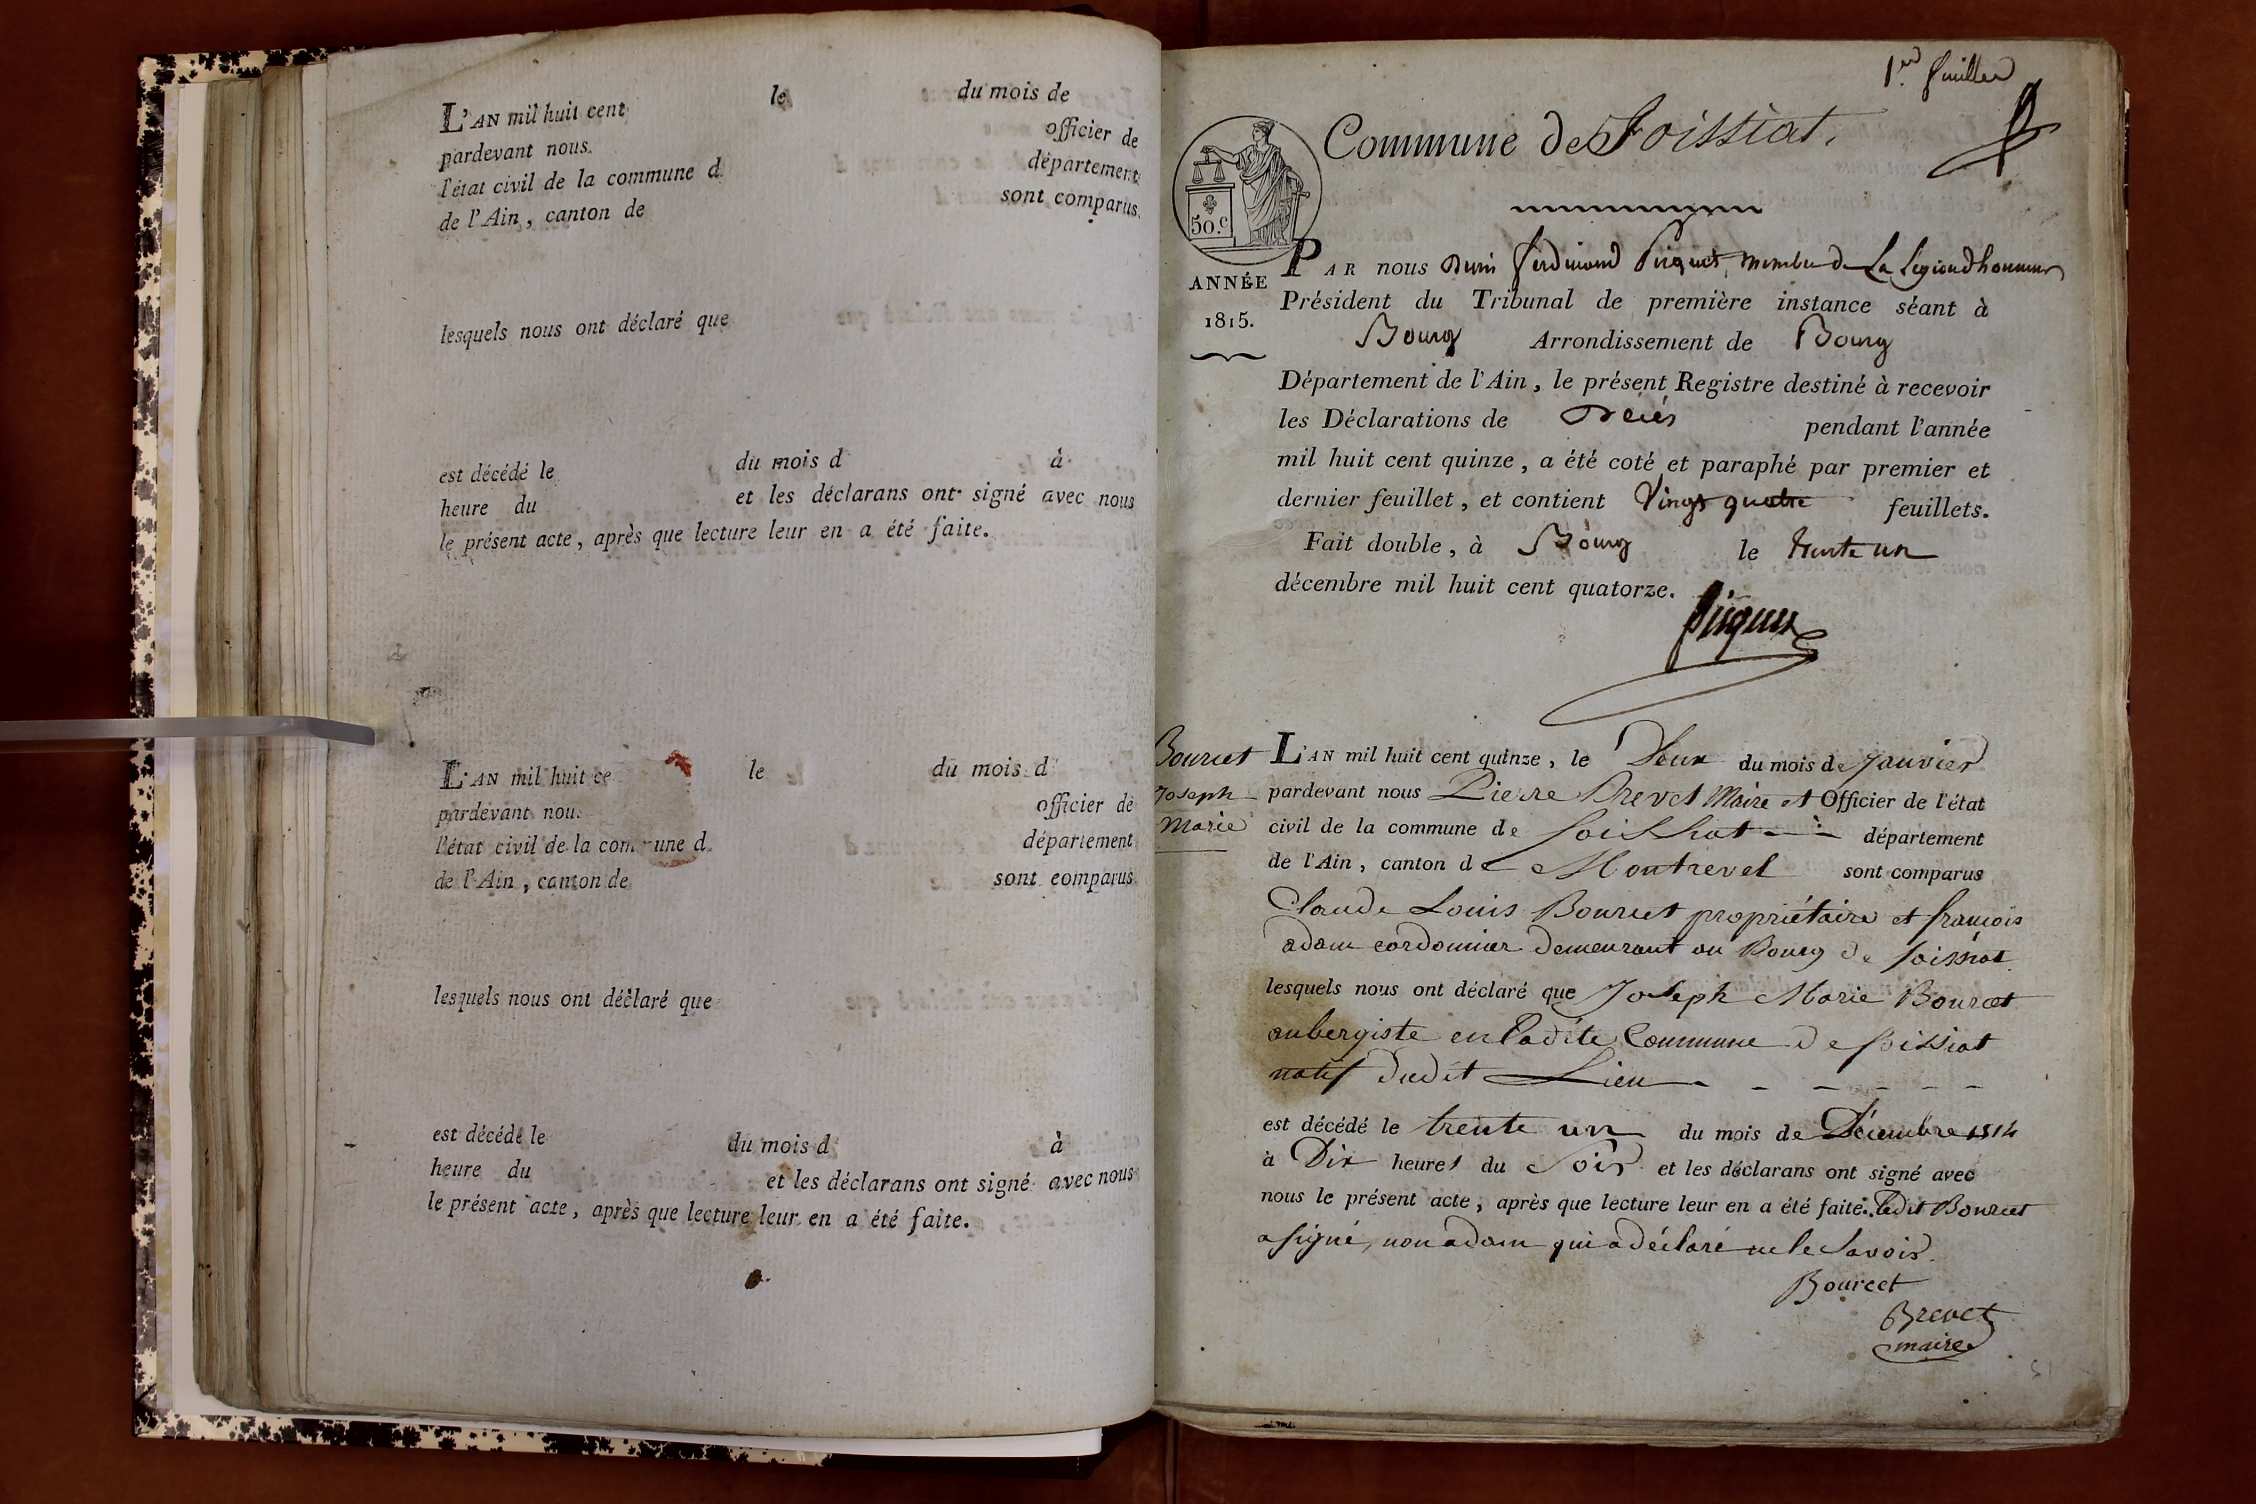 L'AN mil huit cent le du mois de
pardevant nous officier de
l'état civil de la commune d département
de l'Ain, canton de sont comparus
lesquels nous ont déclaré que
est décédé le du mois d à
heure du et les déclarans ont signé avec nous
le présent acte, après que lecture leur en a été faite.
L'AN mil huit ce le du mois d
pardevant nous officier de
l'état civil de la commune d département
de l'Ain, canton de sont comparus
lesquels nous ont déclaré que
est décédé le du mois d à
heure du et les déclarans ont signé avec nous
le présent acte, après que lecture leur en a été faite.
1er feuillet
Commune de Foissiat.
50.c
ANNÉE
1815.
PAR nous Ferdinand Picquet, membre de La Légion dhonneur
Président du Tribunal de première instance séant à
Bourg Arrondissement de Bourg
Département de l'Ain, le présent Registre destiné à recevoir
les Déclarations de Décès pendant l'année
mil huit cent quinze, a été coté et paraphé par premier et
dernier feuillet, et contient Vingt quatre feuillets.
Fait double, à Bourg le trente un
décembre mil huit cent quatorze.
Picquet
Bourcet
Joseph
Marie
L'AN mil huit cent quinze, le Deux du mois de Janvier
pardevant nous Pierre Brevet Maire et Officier de l'état
civil de la commune de foissiat département
de l'Ain, canton de Montrevel sont comparus
Claude Louis Bourcet propriétaire et françois
adam cordonnier demeurant au Bourg de foissiat
lesquels nous ont déclaré que Joseph Marie Bourcet
aubergiste en Ladite Commune de foissiat
natif dudit Lieu
est décédé le trente un du mois de Décembre 1814
à Dix heures du Soir et les déclarans ont signé avec
nous le présent acte, après que lecture leur en a été faite. Ledit Bourcet
a signé, non adam qui a déclaré ne le Savoir.
Bourcet
Brevet
maire